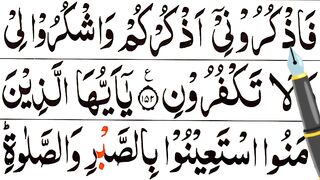 فَاذْكُرُوْنِيْۤ اَذْكُرْكُمْ وَاشْكُرُوْا لِیْ
وَلَا تَكْفُرُوْنِ ۝۱۵۲ ع یٰۤاَیُّهَا الَّذِیْنَ
مَنُوا اسْتَعِیْنُوْا بِالصَّبْرِ وَالصَّلٰوةِ ؕ